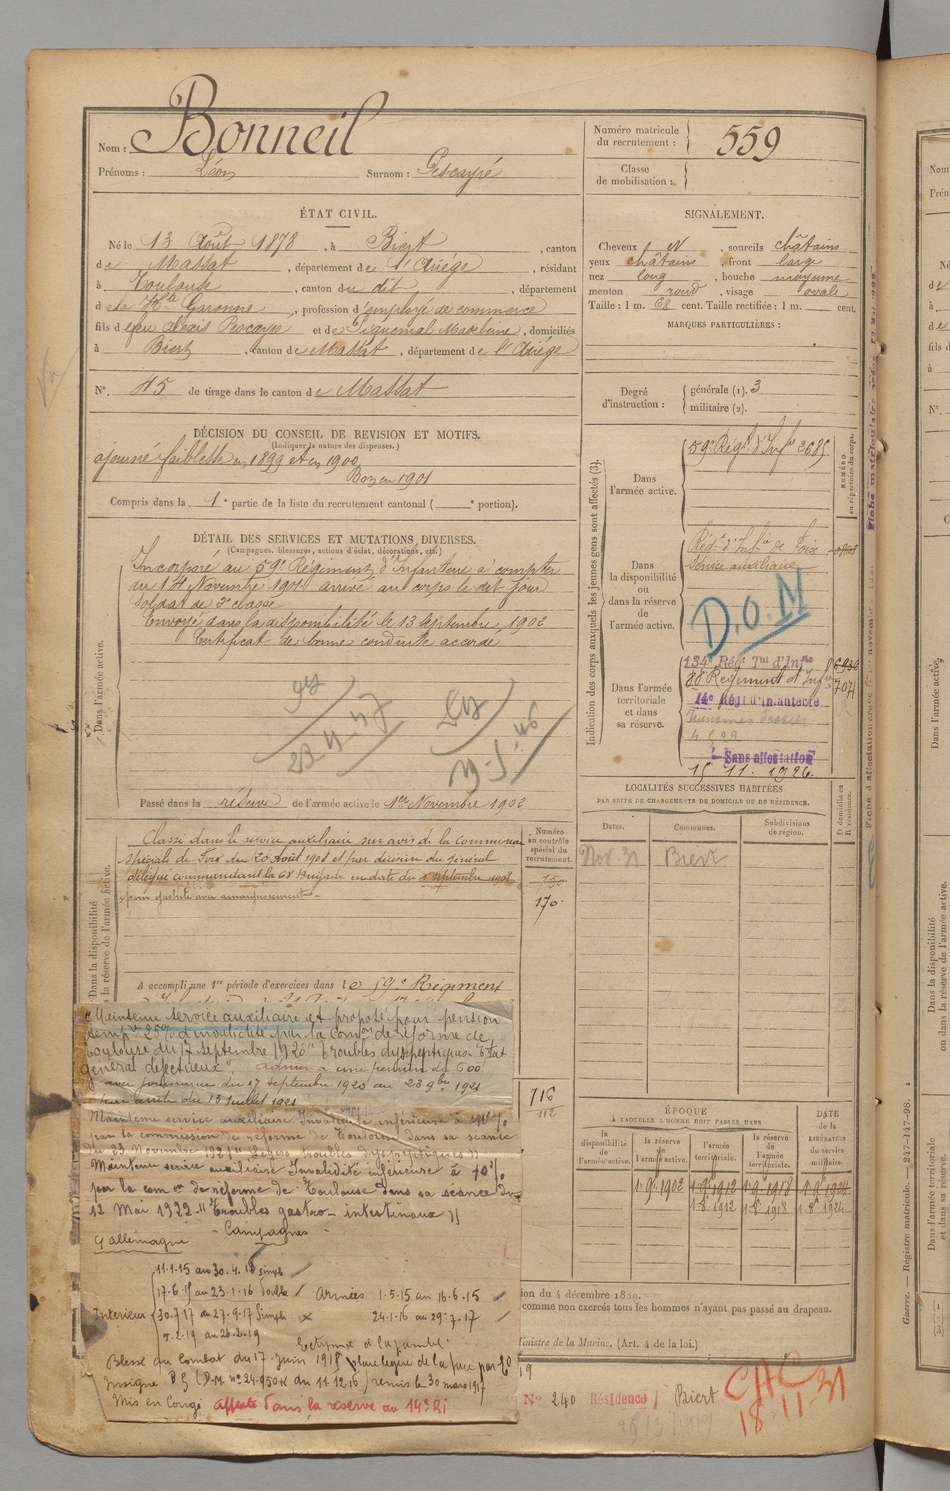 Nom : Bonneil
Prénoms : Léon Surnom : Pescayré
ÉTAT CIVIL.
Né le 13 Août 1878, à Biert, canton
de Massat, département de l'Ariége, résidant
à Toulouse, canton du dit, département
de la Hte Garonne, profession d'employé de commerce
fils d et de Piquemal Madeleine, domiciliés
à Biert, canton de Massat, département de l'Ariége
N°. 45 de tirage dans le canton de Massat
DÉCISION DU CONSEIL DE REVISION ET MOTIFS.
(Indiquer la nature des dispenses.)
ajourné faiblesse en 1899 et en 1900
Bon en 1901
Compris dans la 1e partie de la liste du recrutement cantonal ( e portion).
DÉTAIL DES SERVICES ET MUTATIONS DIVERSES.
(Campagnes, blessures, actions d'éclat, décorations, etc.)
Dans l'armée active.
Incorporé au 59e Régiment d'Infanterie à compter
du 14 Novembre 1901 arrivé au corps le dit jour
soldat de 2e classe
Envoyé dans la disponibilité le 13 Septembre 1902
Certificat de bonne conduite accordé
Passé dans la réserve de l'armée active le 1er Novembre 1902
Dans la disponibilité
la réserve de l'armée active.
Classé dans le service auxiliaire sur avis de la commission
spéciale de Foix du 20 Août 1908 et par décision du général
délégué commandant la 68e Brigade en date du 1 septembre 1908
pour
Numéro
au contrôle
spécial du
recrutement.
150
170
A accompli une 1re période d'exercices dans le 59e Régiment
Maintenu service auxiliaire et proposé pour pension
temp. 25% d'invalidité par la Comon de réforme de
Toulouse du 17 septembre 1920 "Troubles dyspeptiques Etat
général défectueux". admis à une pension de 600
avec jouissance du 17 septembre 1920 au 23 9bre 1921
par arrêté du 13 juillet 1921
Maintenu service auxiliaire Invalidité inférieure à 10%
par la commission de réforme de Toulouse dans sa séance
du 23 Novembre 1921 troubles dyspeptiques
Maintenu service auxiliaire Invalidité inférieure à 10%
par la com on de réforme de Toulouse dans sa séance du
12 Mai 1922 "Troubles gastro-intestinaux"
Campagnes
C/ allemagne
11.1.15 au 30.4.15 simple
17.6.15 au 23.1.16 double Armées 1.5.15 au 16.6.15
Intérieur 30.7.17 au 27.9.17 simple 24.1.16 au 29.7.17
5.2.19 au 26.2.19
Blessé au combat du 17 juin 1915
Insigne B G (D.M. n° 24.950 K du 11.12.16) remis le 30 mars 1917
Mis en Congé affecté dans la réserve au 14e RI
716
112
Numéro matricule
du recrutement : 559
Classe
de mobilisation :
SIGNALEMENT.
Cheveux N, sourcils châtains
yeux châtains, front large
nez long, bouche moyenne
menton rond, visage ovale
Taille : 1 m. 68 cent. Taille rectifiée : 1 m. cent.
MARQUES PARTICULIÈRES :
Degré
d'instruction :
générale (1). 3
militaire (2).
Indication des corps auxquels les jeunes gens sont affectés (3).
NUMÉRO
au répertoire du corps.
Dans
l'armée active.
59e Régt d'Infie 2685
Dans
la disponibilité
ou
dans la réserve
de
l'armée active.
Régt d'Infie de Foix
Service auxiliaire
D.O.M
Dans l'armée
territoriale
et dans
sa réserve.
134e Régt Tal d'Infie
Régiment d'Inf
14e Régt d'Infanterie
Sans affectation
15.11.1926.
LOCALITÉS SUCCESSIVES HABITÉES
PAR SUITE DE CHANGEMENTS DE DOMICILE OU DE RÉSIDENCE.
Dates. Communes. Subdivisions
de région.
D domicile ou
R résidence.
Nov. 31 Biert
ÉPOQUE
À LAQUELLE L'HOMME DOIT PASSER DANS
DATE
DE LA
LIBÉRATION
du service
militaire.
la
disponibilité
de
l'armée active.
la réserve
de
l'armée active.
l'armée
territoriale.
la réserve
de
l'armée
territoriale.
1.9.1902 1.9.1912 1.9.1918 1.9.1924
1.8.1912 1.8.1918 1.8.1924
ion du 4 décembre 1889.
comme non exercés tous les hommes n'ayant pas passé au drapeau.
Ministre de la Marine, (Art. 4 de la loi.)
N° 240 Résidence Biert
CHC
18-11-31
Guerre. — Registre matricule. — 247-147-98.
Dans l'armée active.
Dans la disponibilité
ou dans la réserve de l'armée active.
Dans l'armée territoriale
et dans sa réserve.